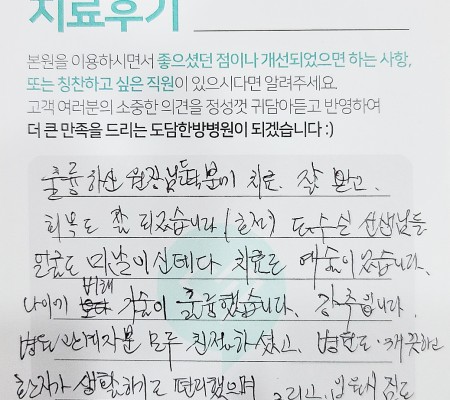 치료후기
본원을 이용하시면서 좋으셨던 점이나 개선되었으면 하는 사항,
또는 칭찬하고 싶은 직원이 있으시다면 알려주세요.
고객 여러분의 소중한 의견을 정성껏 귀담아듣고 반영하여
더 큰 만족을 드리는 도담한방병원이 되겠습니다 :)
훌륭하신 원장님들 치료 잘 받고,
회복도 잘 되었습니다 도수실 선생님들
얼굴도 미남이신데다 치료도 예술이었습니다.
나이에 비해 기술이 출중했습니다. 강추입니다.
병원 관계자분 모두 친절하셨고, 병원도 깨끗하고
환자가 생활하기도 편리했으며 그리고,